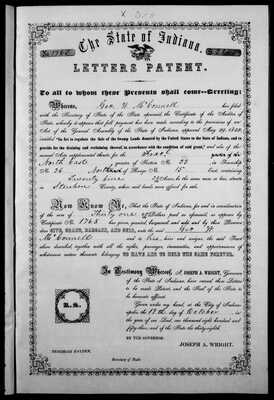 The State of Indiana.
No 1765
LETTERS PATENT.
To all to whom these Presents shall come—Greeting:
Whereas, Geo. W McConnell has filed
with the Secretary of State of the State aforesaid the Certificate of the Auditor of
State, whereby it appears that full payment has been made according to the provisions of an
Act of the General Assembly of the State of Indiana, approved May 29, 1852,
entitled "An Act to regulate the Sale of the Swamp Lands donated by the United States to the State of Indiana, and to
provide for the draining and reclaiming thereof, in accordance with the condition of said grant," and also of the
several Acts supplemental thereto, for the West ½ quarter of the
North East quarter of Section No. 33 in Township
No. 36 North of Range No. 15 East containing
Acres, be the same more or less, situate
in Steuben County, where said lands were offered for sale.
Now Know Ye, That the State of Indiana, for and in consideration
of the sum of Thirty one Dollars paid as aforesaid, as appears by
Certificate No. 1765 has given, granted, bargained and sold, and by these Presents
does GIVE, GRANT, BARGAIN, AND SELL, unto the said Geo W
McConnell and to his heirs and assigns the said Tract
above described, together with all the rights, privileges, immunities, and appurtenances of
whatsoever nature thereunto belonging, TO HAVE AND TO HOLD THE SAME FOREVER.
In Testimony Whereof, I, JOSEPH A. WRIGHT, Governor
of the State of Indiana, have caused these Letters
to be made Patent, and the Seal of the State to
be hereunto affixed.
Given under my hand, at the City of Indian-
apolis, the 18th day of October in
the year of our Lord, one thousand eight hundred and
fifty-three, and of the State the thirty-eighth.
BY THE GOVERNOR:
JOSEPH A. WRIGHT.
L.S.
NEHEMIAH HAYDEN,
Secretary of State.